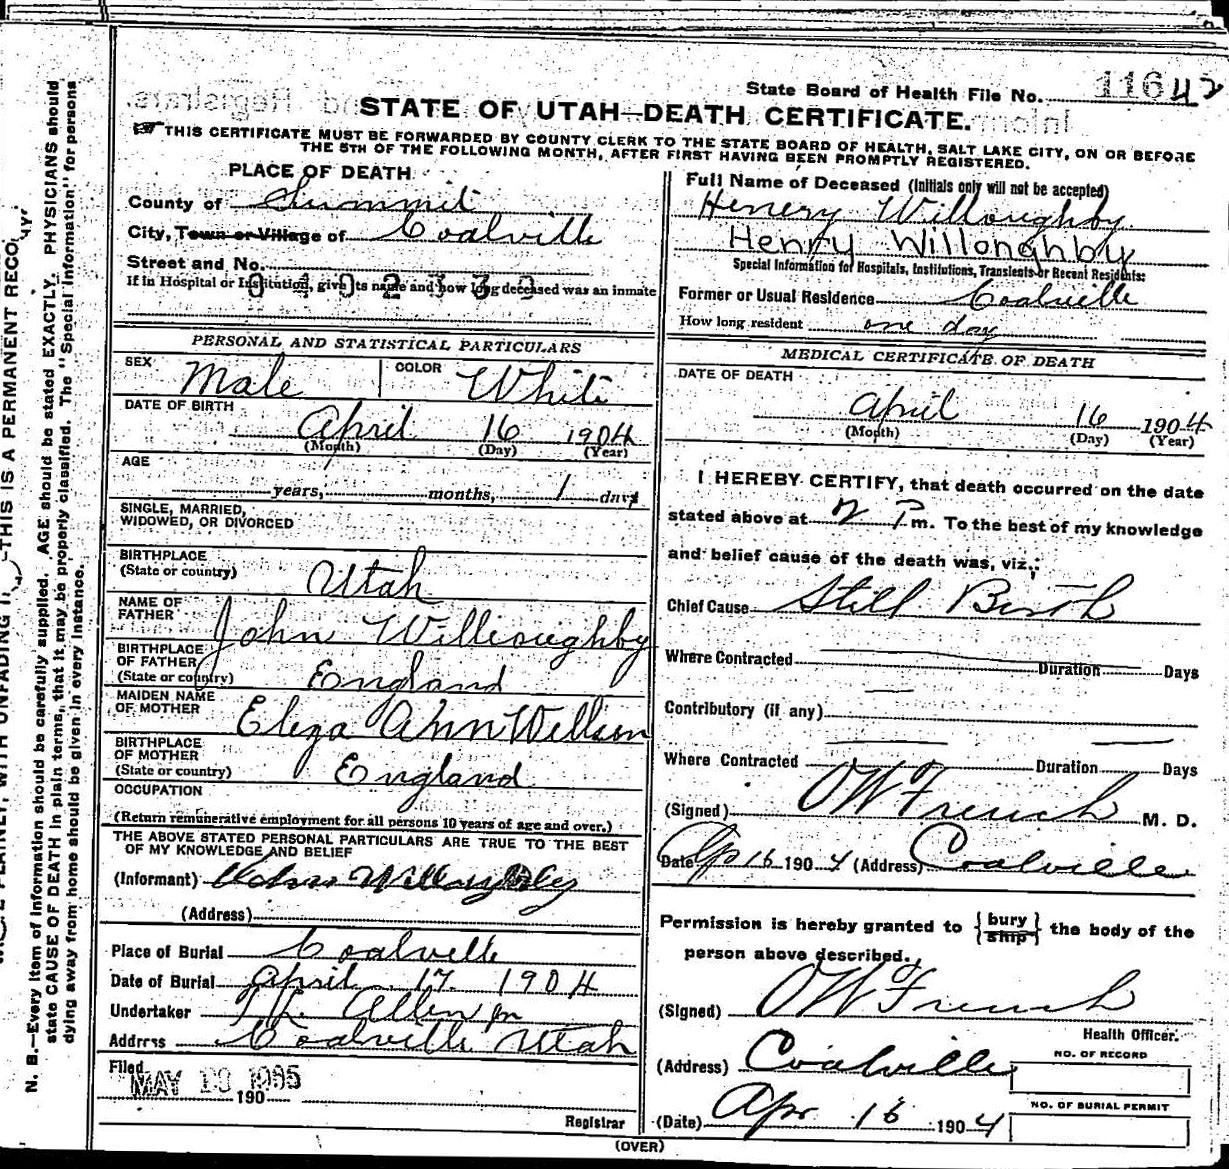 State Board of Health File No. 11642
STATE OF UTAH—DEATH CERTIFICATE.
THIS CERTIFICATE MUST BE FORWARDED BY COUNTY CLERK TO THE STATE BOARD OF HEALTH, SALT LAKE CITY, ON OR BEFORE
THE 5TH OF THE FOLLOWING MONTH, AFTER FIRST HAVING BEEN PROMPTLY REGISTERED.
PLACE OF DEATH
County of Summit
City, Town or Village of Coalville
Street and No.
If in Hospital or Institution, give its name and how long deceased was an inmate
PERSONAL AND STATISTICAL PARTICULARS
SEX Male COLOR White
DATE OF BIRTH
April 16 1904
(Month) (Day) (Year)
AGE
years, months, 1 days
SINGLE, MARRIED,
WIDOWED, OR DIVORCED
BIRTHPLACE
(State or country) Utah
NAME OF
FATHER John Willioughby
BIRTHPLACE
OF FATHER
(State or country) England
MAIDEN NAME
OF MOTHER Eliza Ann
BIRTHPLACE
OF MOTHER
(State or country) England
OCCUPATION
(Return remunerative employment for all persons 10 years of age and over.)
THE ABOVE STATED PERSONAL PARTICULARS ARE TRUE TO THE BEST
OF MY KNOWLEDGE AND BELIEF
(Informant) John Willoughby
(Address)
Place of Burial Coalville
Date of Burial April 17 1904
Undertaker Allen
Address Coalville Utah
Filed
MAY 1905
190
Registrar
Full Name of Deceased (Initials only will not be accepted)
Henery Willoughby
Henry Willonghby
Special Information for Hospitals, Institutions, Transients or Recent Residents:
Former or Usual Residence Coalville
How long resident one day
MEDICAL CERTIFICATE OF DEATH
DATE OF DEATH
April 16 1904
(Month) (Day) (Year)
I HEREBY CERTIFY, that death occurred on the date
stated above at 2 P m. To the best of my knowledge
and belief cause of the death was, viz.;
Chief Cause Still Birth
Where Contracted Duration Days
Contributory (if any)
Where Contracted Duration Days
(Signed) OW French M. D.
Date Ap 16 1904 (Address) Coalville
Permission is hereby granted to {bury ship} the body of the
person above described.
(Signed) OW French
Health Officer.
(Address) Coalville
NO. OF RECORD
NO. OF BURIAL PERMIT
(Date) Apr 16 1904
(OVER)
N. B.—Every item of information should be carefully supplied. AGE should be stated EXACTLY. PHYSICIANS should
state CAUSE OF DEATH in plain terms, that it may be properly classified. The "Special Information" for persons
dying away from home should be given in every instance.
PLAINLY, WITH UNFADING THIS IS A PERMANENT